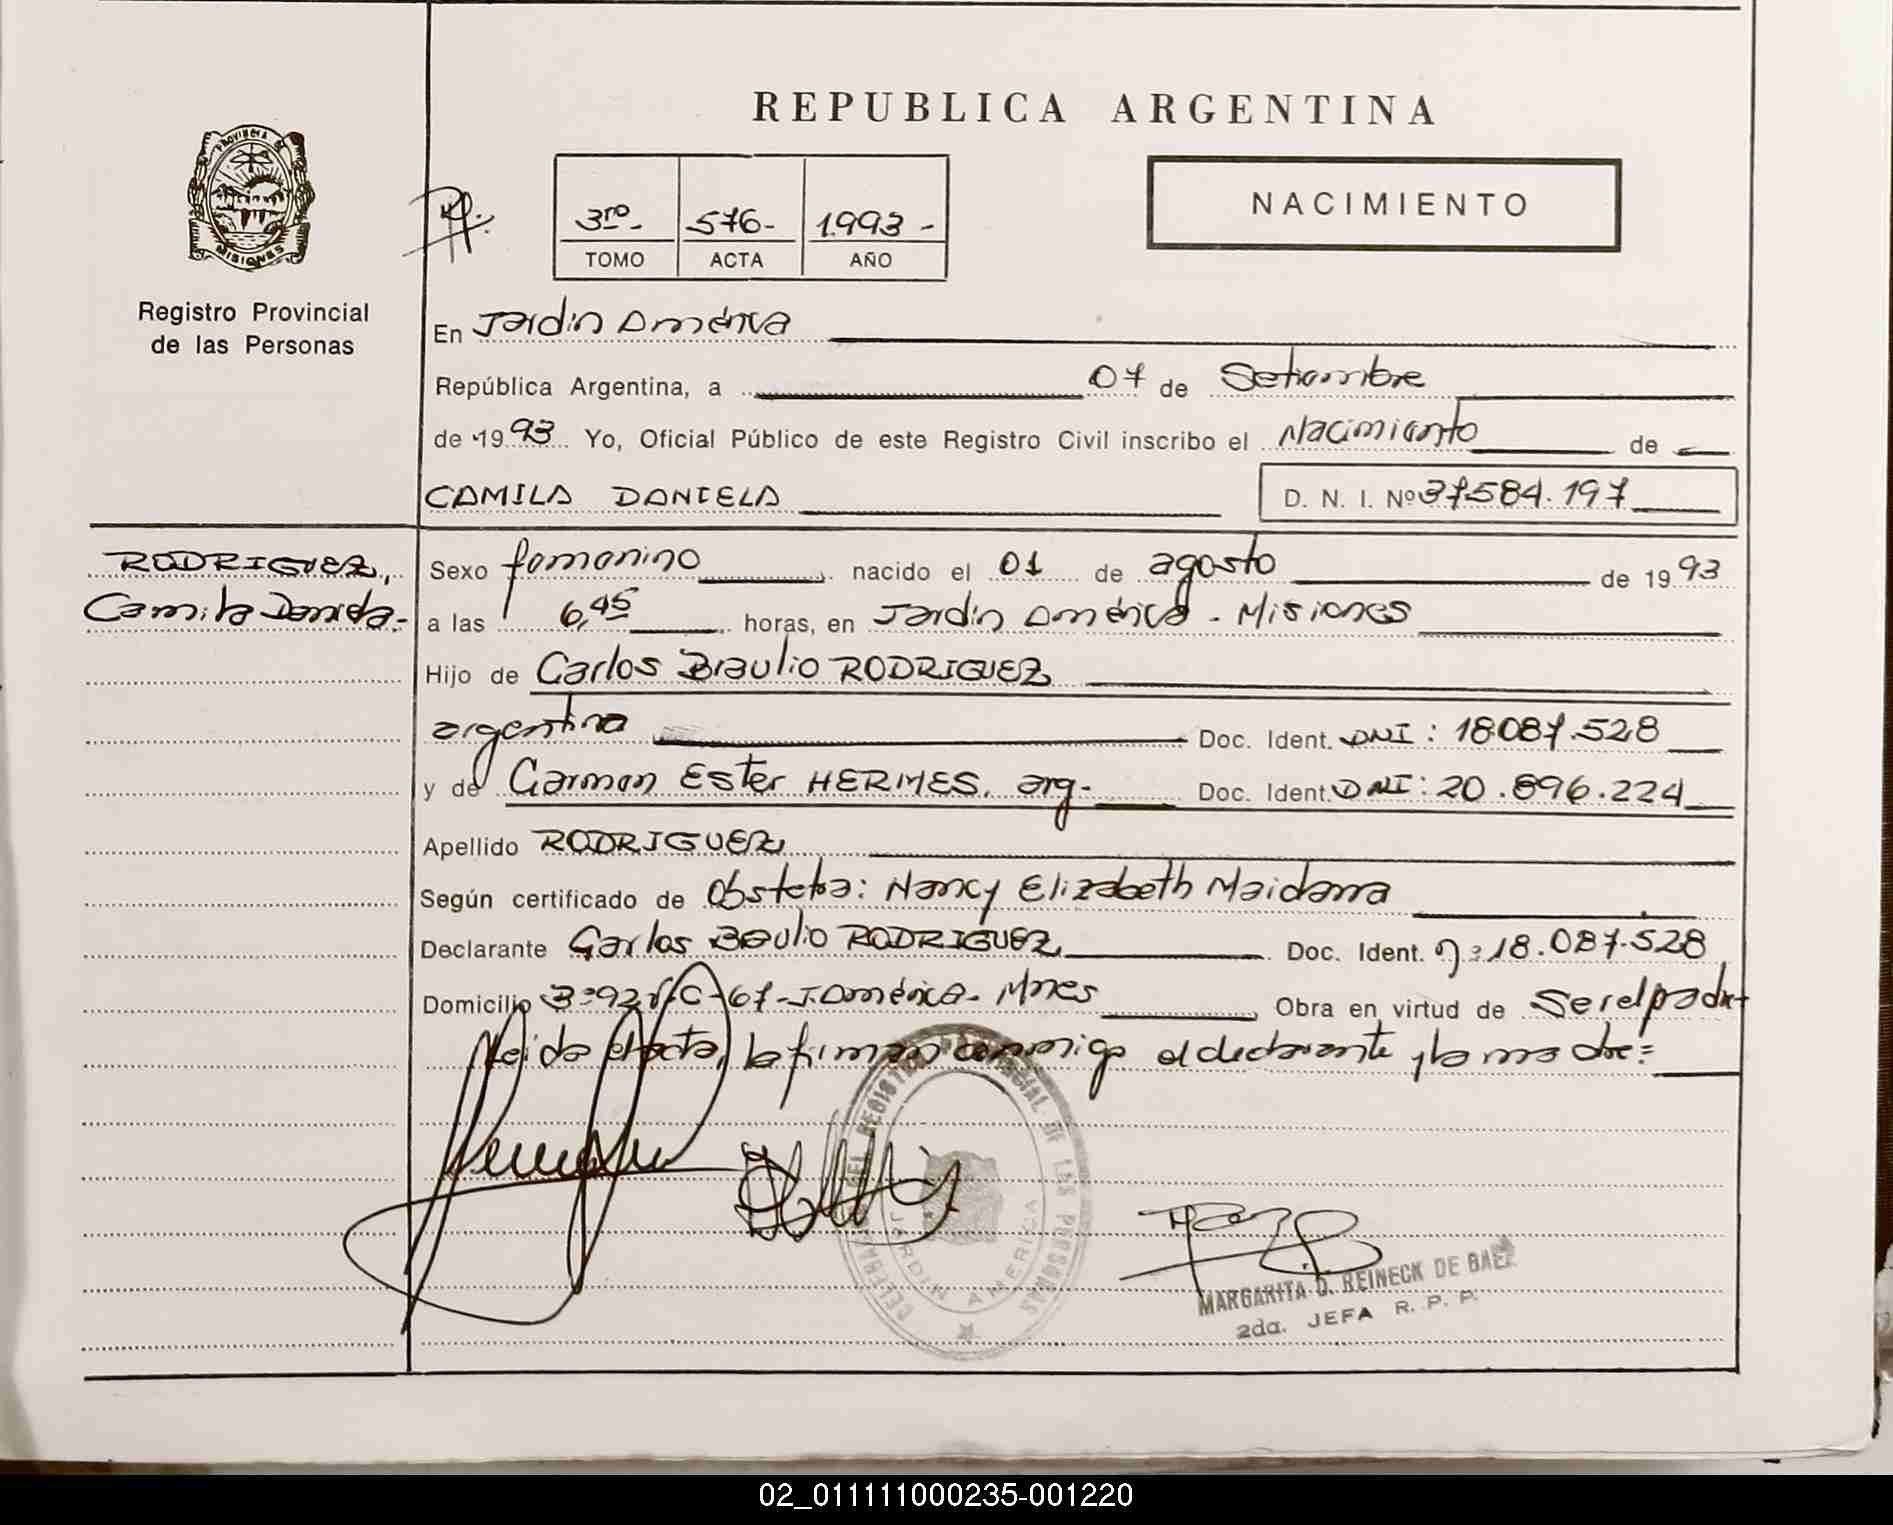 REPUBLICA ARGENTINA
PROVINCIA DE
MISIONES
Registro Provincial
de las Personas
3ro - 576 - 1.993 -
TOMO ACTA AÑO
NACIMIENTO
En Jardín América
República Argentina, a 07 de Setiembre
de 1993 Yo, Oficial Público de este Registro Civil inscribo el Nacimiento de
CAMILA DANIELA D. N. I. Nº 37.584.197
RODRIGUEZ,
Camila Daniela.-
Sexo femenino nacido el 01 de agosto de 1993
a las 6,45 horas, en Jardín América - Misiones
Hijo de Carlos Braulio RODRIGUEZ
argentina Doc. Ident. DNI: 18.087.528
y de Carmen Ester HERMES, arg- Doc. Ident. DNI: 20.896.224
Apellido RODRIGUEZ
Según certificado de Obstetra: Nancy Elizabeth Maidana
Declarante Carlos Braulio RODRIGUEZ Doc. Ident. 18.087.528
Domicilio C-67-J.América- Mnes Obra en virtud de ser el padre
Leida el acta, la firman conmigo el declarante y la madre:
DEL REGISTRO PROVINCIAL DE LAS PERSONAS
JARDIN AMERICA
MARGARITA D. REINECK DE BAEZ
2da. JEFA R. P. P.
02_011111000235-001220